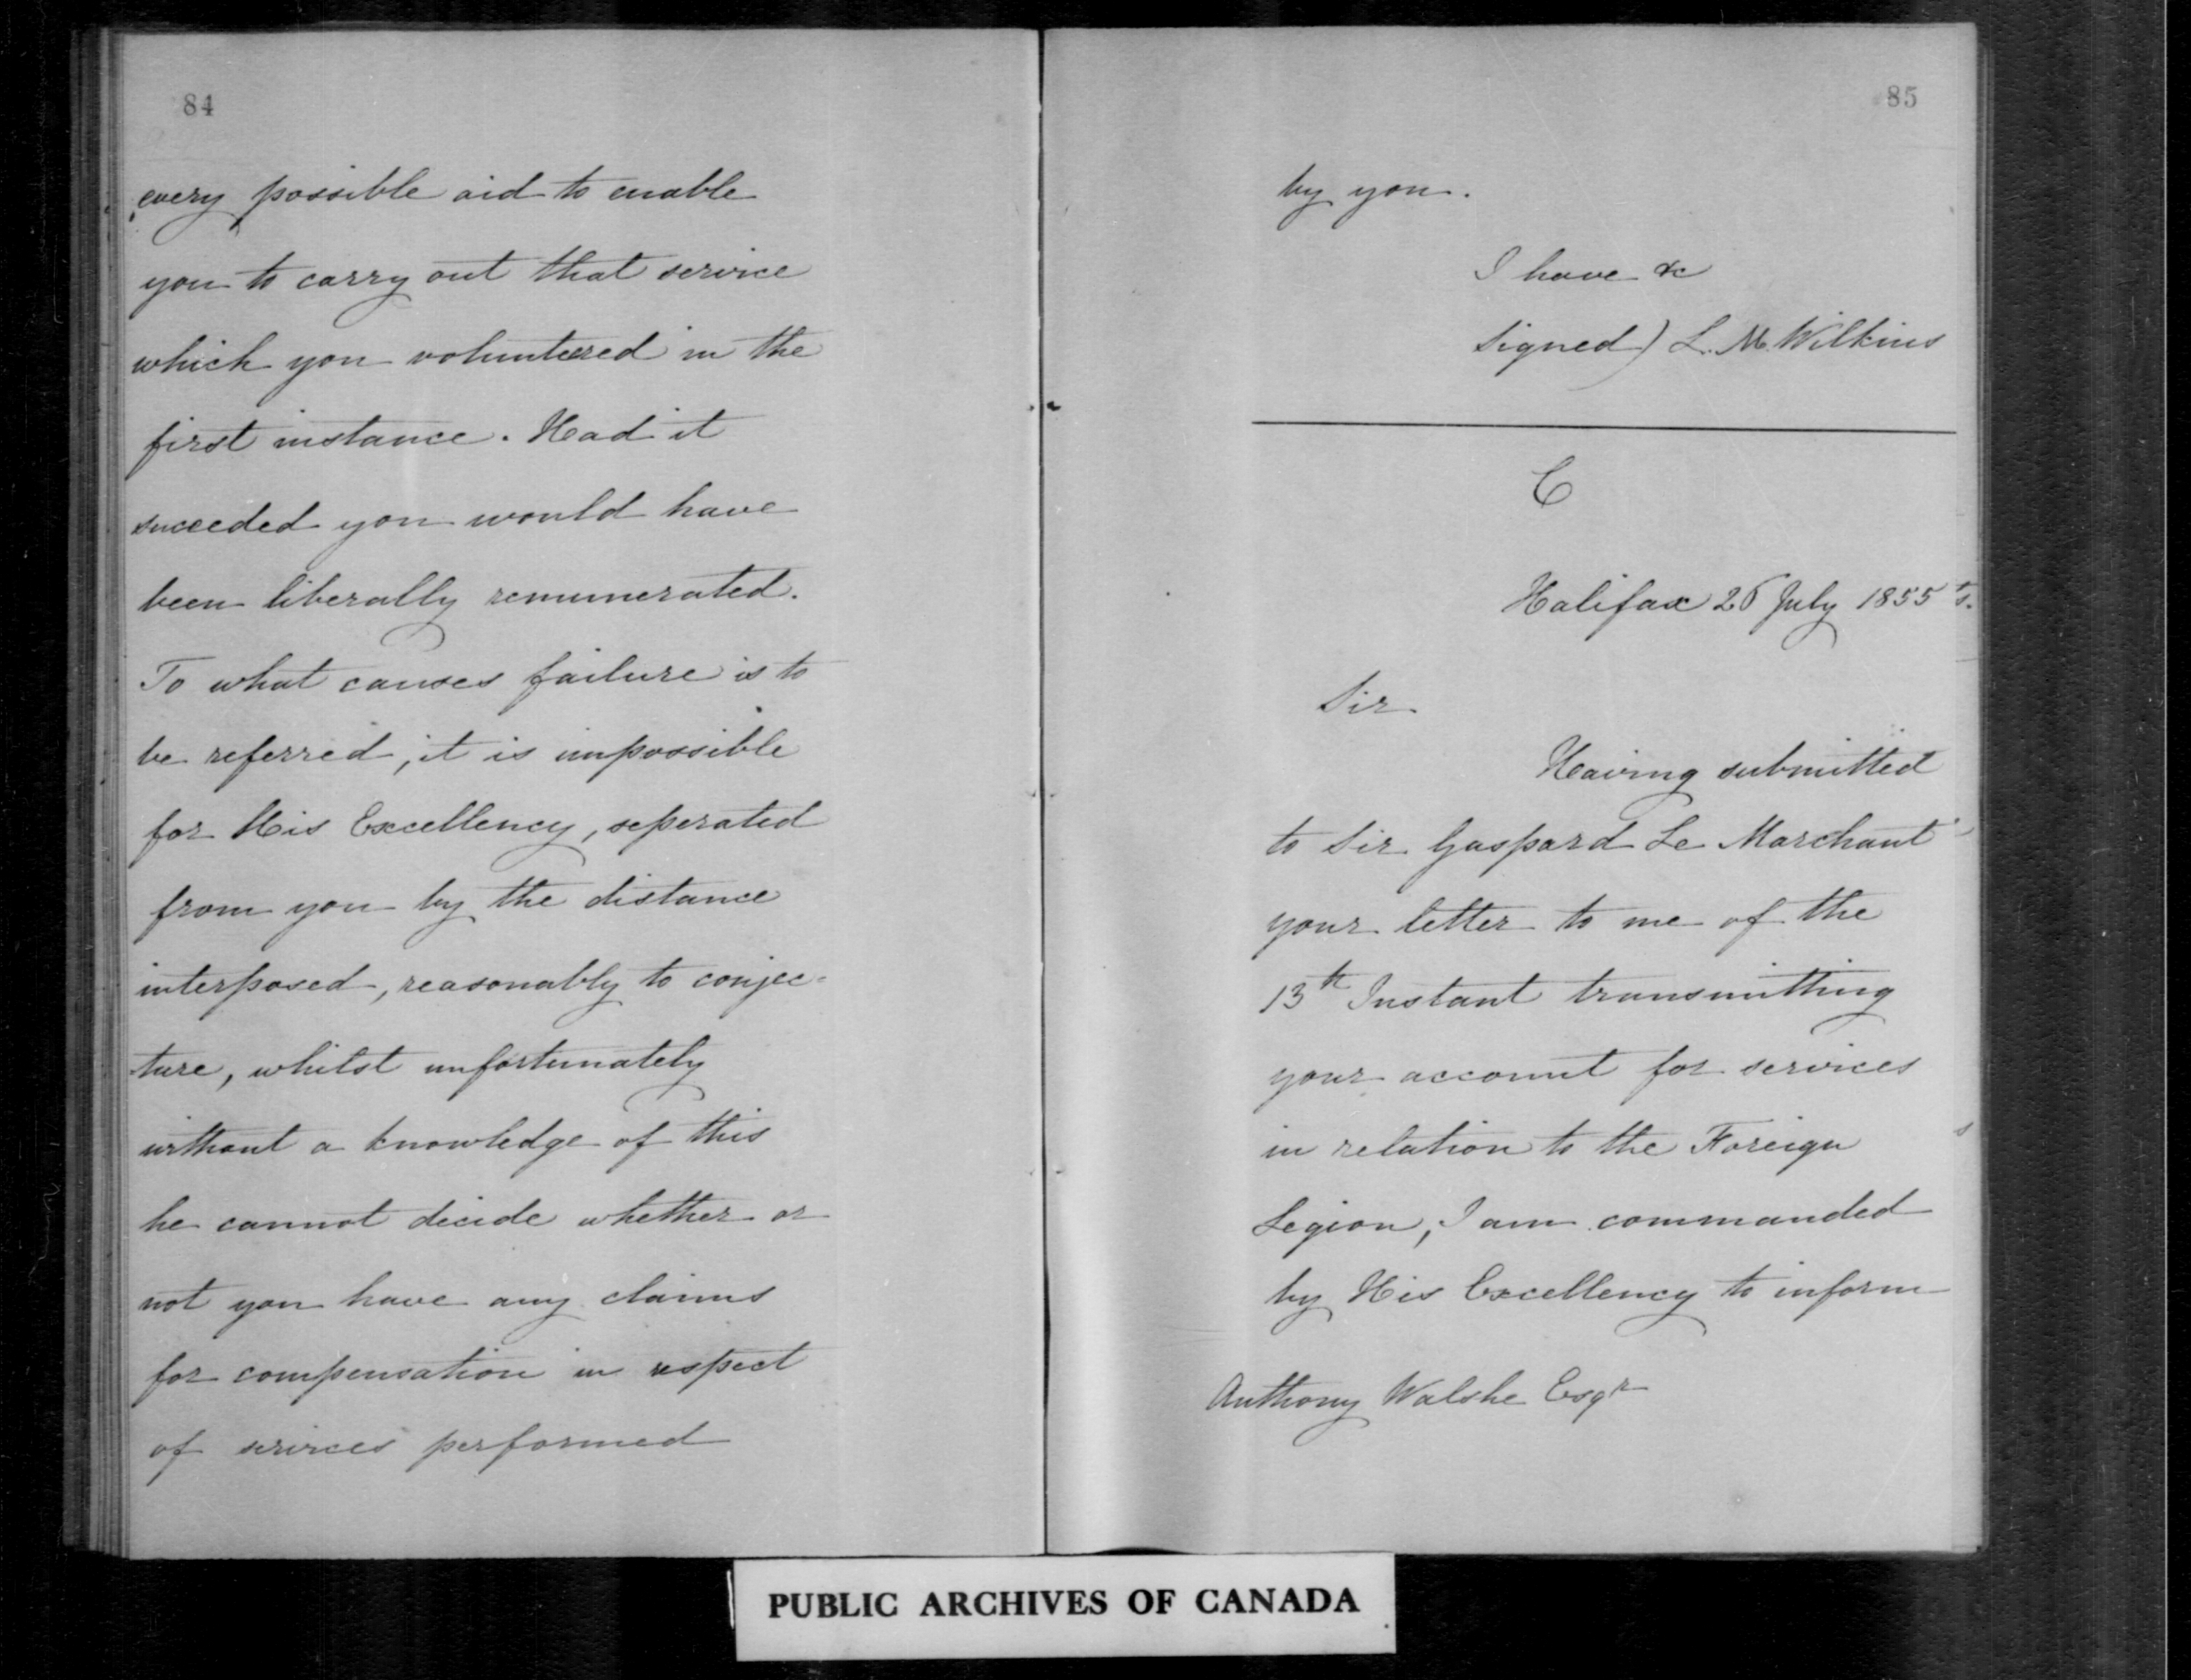 84
every possible aid to enable
you to carry out that service
which you volunteered in the
first instance. Had it
succeeded you would have
been liberally remunerated.
To what causes failure is to
be referred, it is impossible
for His Excellency, seperated
from you by the distance
interposed, reasonably to conjec-
ture, whilst unfortunately
without a knowledge of this
he cannot decide whether or
not you have any claims
for compensation in respect
of services performed
85
by you.
I have &c
signed) L. M. Wilkins
C
Halifax 26 July 1855
Sir.
Having submitted
to Sir Gaspard Le Marchant
your letter to me of the
13th Instant transmitting
your account for services
in relation to the Foreign
Legion, I am commanded
by His Excellency to inform
Anthony Walshe Esqr
PUBLIC ARCHIVES OF CANADA